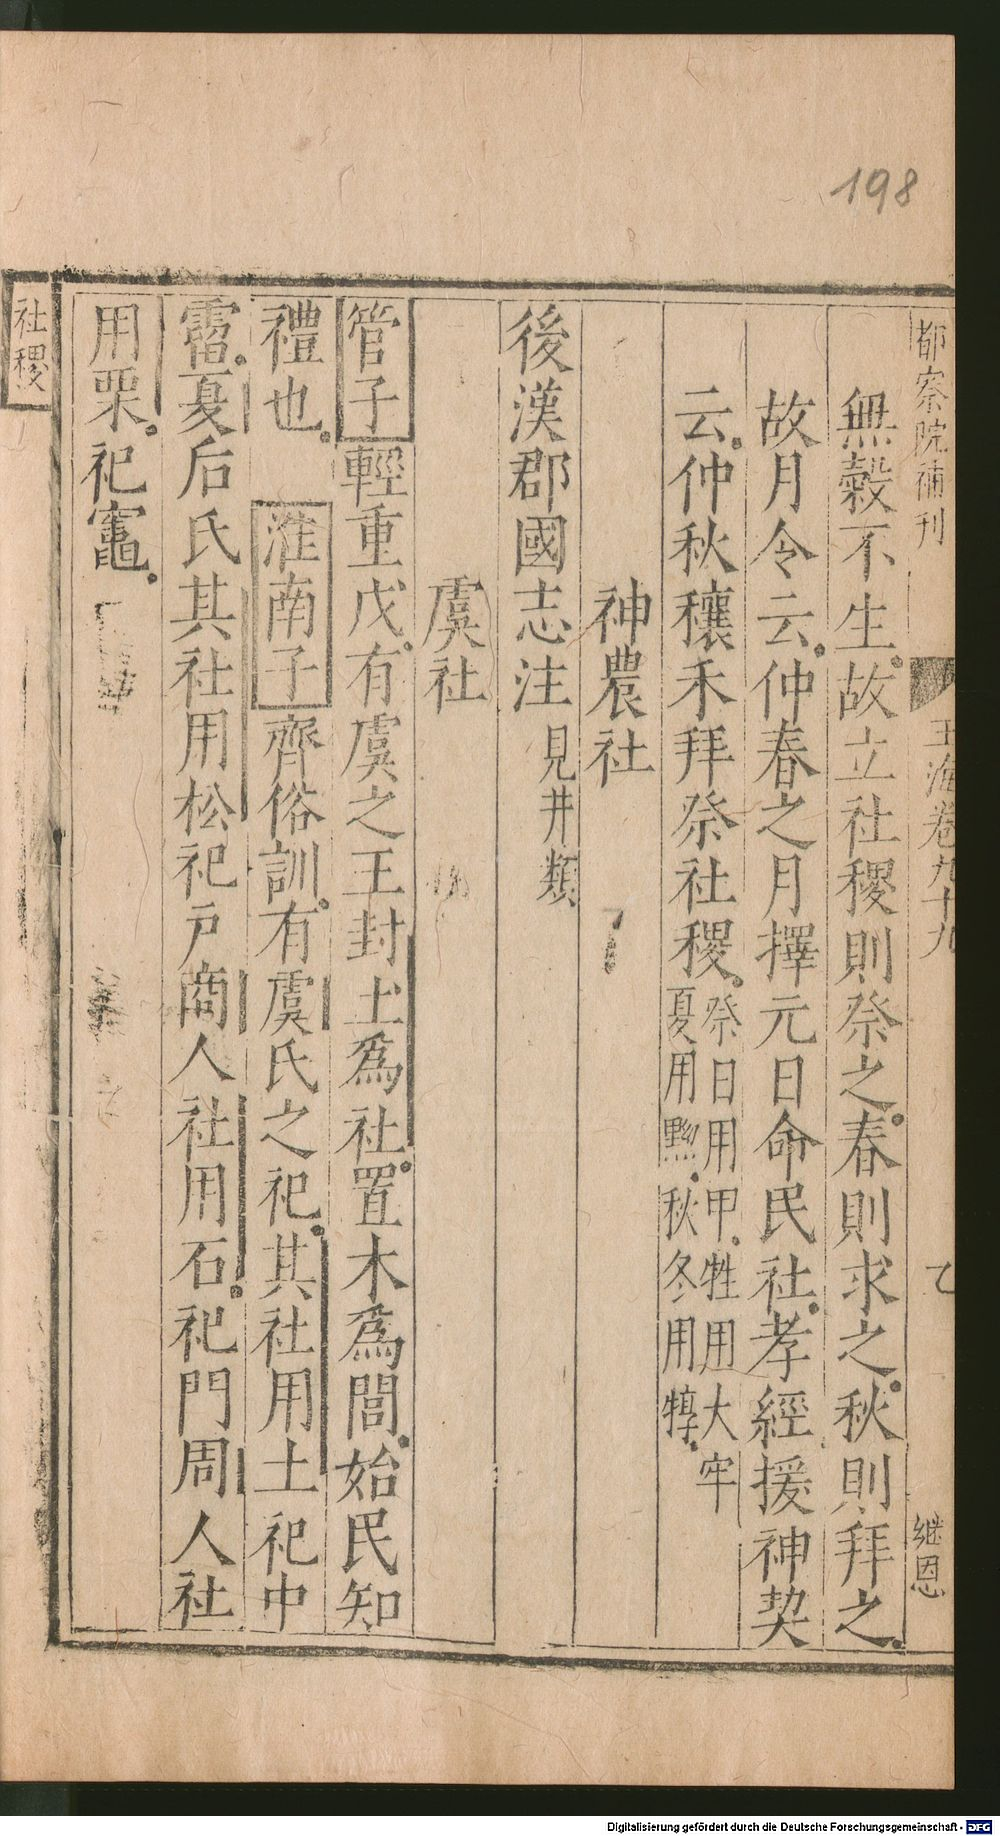 198
都察院補刊
玉海卷九十九
乙
继恩
無穀不生故立社稷則祭之春則求之秋則拜之
故月令云仲春之月擇元日命民社孝經援神契
云仲秋穰禾拜祭社稷
祭日用甲牲用大牢
夏用黝秋冬用犉
神農社
後漢郡國志注見井類
虞社
管子輕重戊有虞之王封土爲社置木爲閭始民知
禮也 淮南子齊俗訓有虞氏之祀其社用土祀中
霤夏后氏其社用松祀戶商人社用石祀門周人社
用栗祀竈
社稷
Digitalisierung gefördert durch die Deutsche Forschungsgemeinschaft - DFG